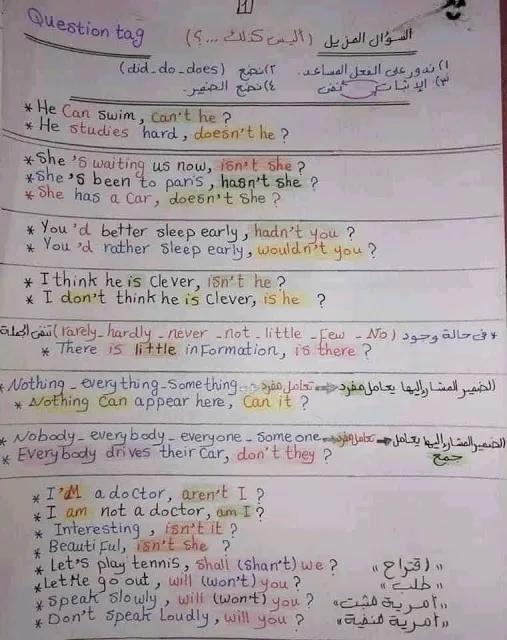 1
Question tag
السؤال المزيل (أليس كذلك ...؟)
١) ندور على الفعل المساعد. ٢) نضع (did-do-does)
٣) الإثبات نفى ٤) نضع الضمير.
* He Can swim, can't he ?
* He studies hard, doesn't he ?
* She 's waiting us now, isn't she ?
* She 's been to paris, hasn't she ?
* She has a car, doesn't she ?
* You 'd better sleep early, hadn't you ?
* You 'd rather sleep early, wouldn't you ?
* I think he is Clever, isn't he ?
* I don't think he is Clever, is he ?
* فى حالة وجود (rarely - hardly - never - not - little - few - No) تنفى الجملة
* There is little information, is there ?
* Nothing - everything - something تعامل مفرد الضمير المشار إليها يعامل مفرد
* Nothing Can appear here, Can it ?
* Nobody - everybody - everyone - someone تعامل مفرد الضمير المشار إليها يعامل جمع
* Everybody drives their Car, don't they ?
* I'M a doctor, aren't I ?
* I am not a doctor, am I ?
* Interesting, isn't it ?
* Beautiful, isn't she ?
* Let's play tennis, shall (shan't) we ? "اقتراح"
* Let Me go out, will (won't) you ? "طلب"
* Speak slowly, will (won't) you ? "أمرية مثبتة"
* Don't speak Loudly, will you ? "أمرية منفية"